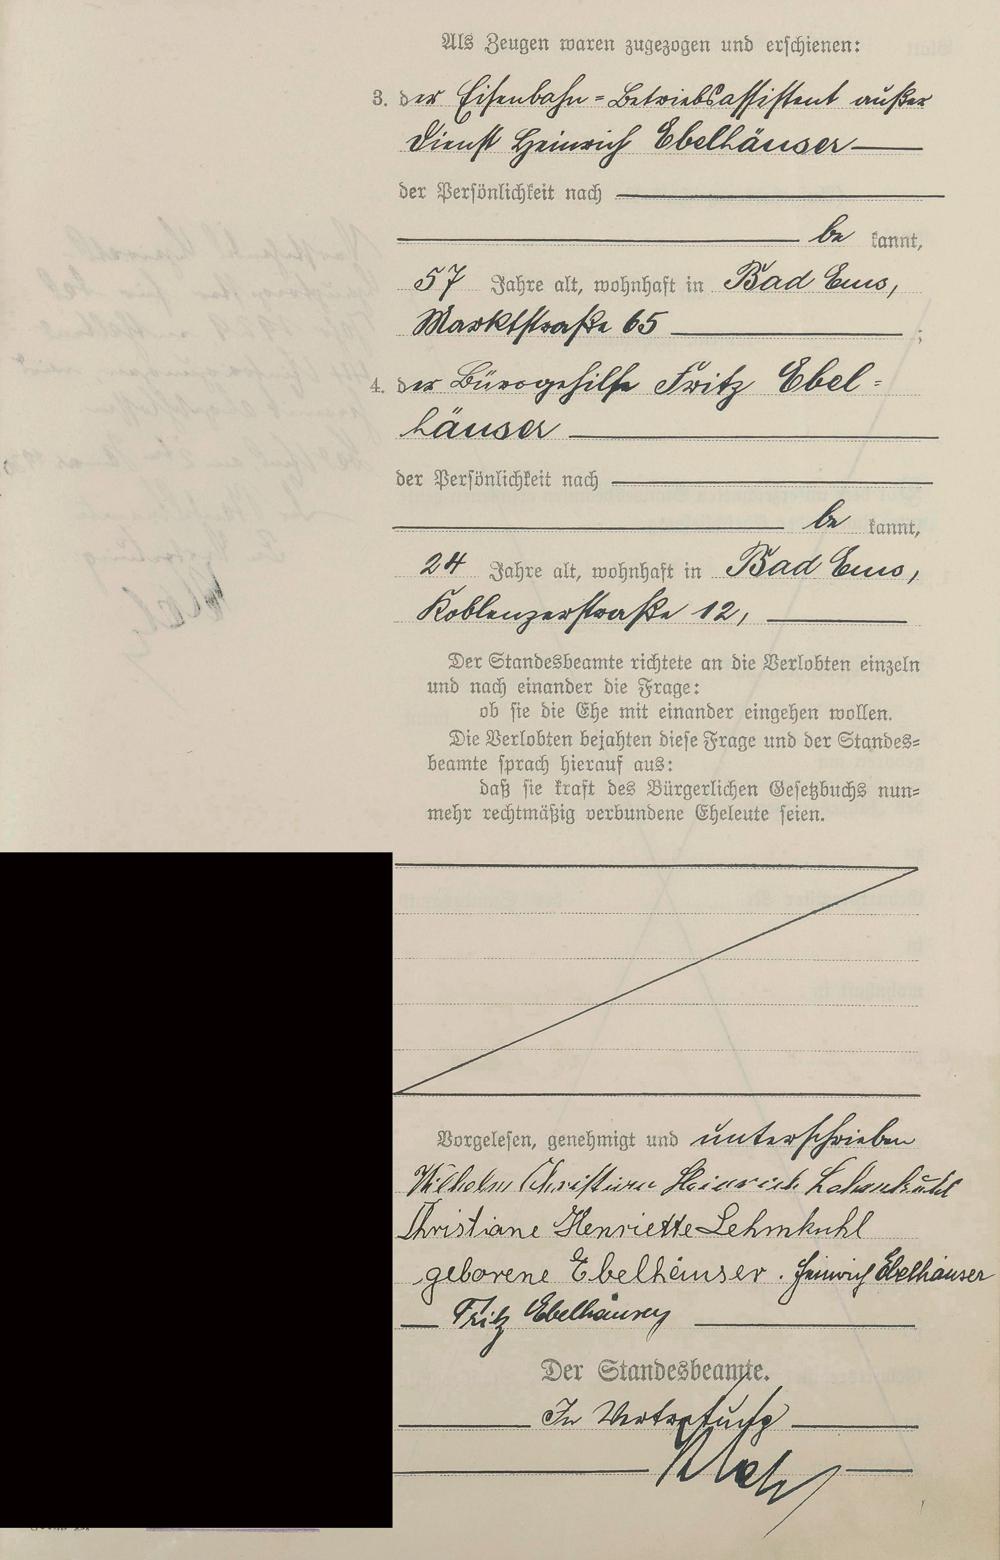 Als Zeugen waren zugezogen und erschienen:
3. der Eisenbahn-Betriebsassistent außer
Dienst Heinrich Ebelhäuser
der Persönlichkeit nach
be kannt,
57 Jahre alt, wohnhaft in Bad Ems,
Marktstraße 65 ;
4. der Bürogehilfe Fritz Ebel-
häuser
der Persönlichkeit nach
be kannt,
24 Jahre alt, wohnhaft in Bad Ems,
Koblenzerstraße 12,
Der Standesbeamte richtete an die Verlobten einzeln
und nach einander die Frage:
ob sie die Ehe mit einander eingehen wollen.
Die Verlobten bejahten diese Frage und der Standes-
beamte sprach hierauf aus:
daß sie kraft des Bürgerlichen Gesetzbuchs nun-
mehr rechtmäßig verbundene Eheleute seien.
Vorgelesen, genehmigt und unterschrieben
Wilhelm Christian Heinrich Lehmkuhl
Christiane Henriette Lehmkuhl
geborene Ebelhäuser. Heinrich Ebelhäuser
Fritz Ebelhäuser
Der Standesbeamte.
In Vertretung